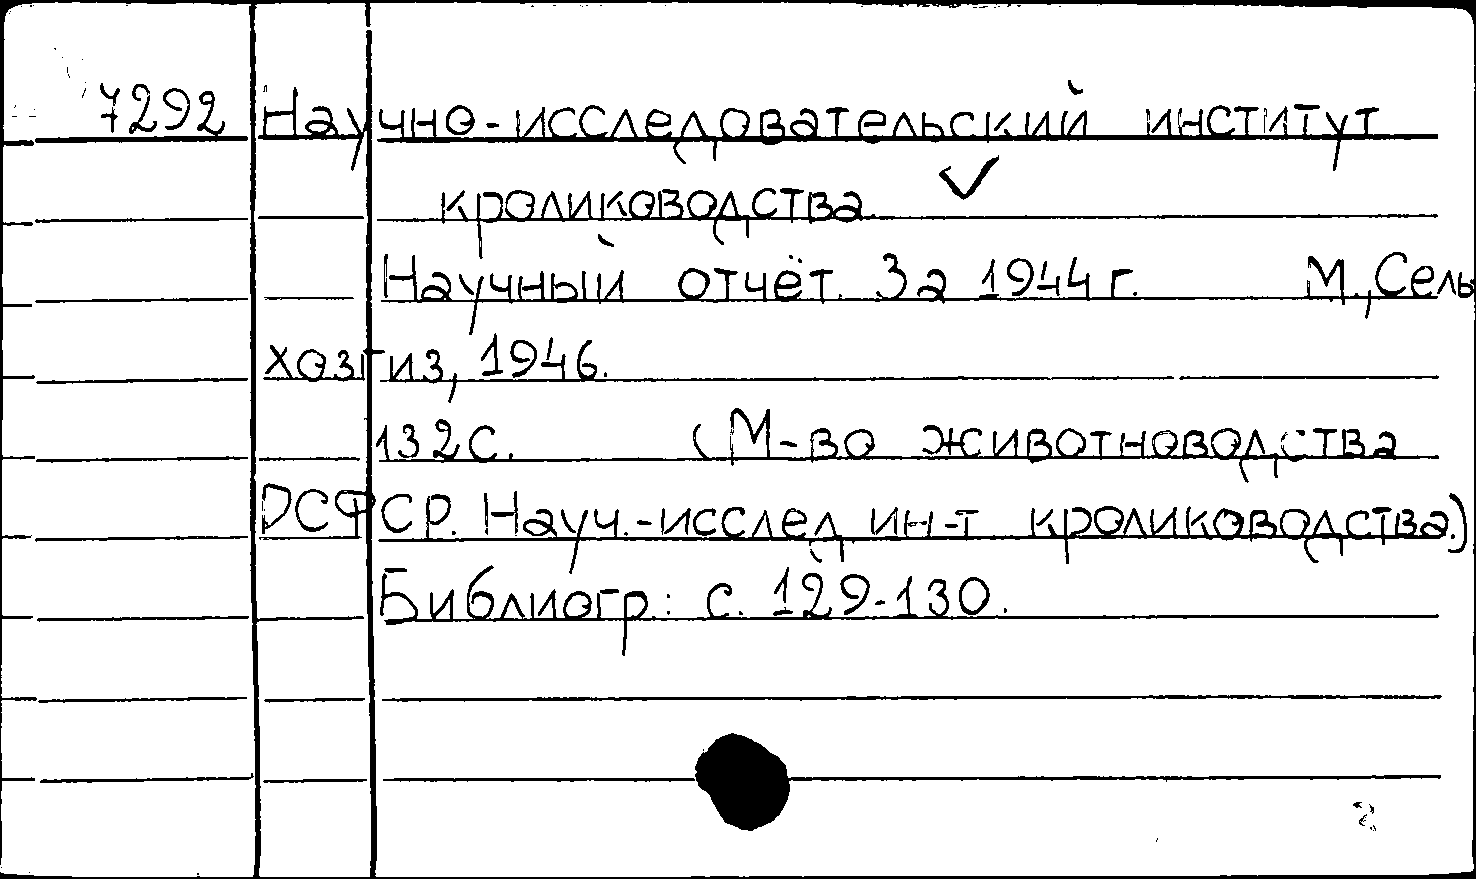 7292 Научно-исследовательский институт
кролиководства
Научный отчёт. За 1944 г. М., Сель
хозгиз, 1946.
132 с. (М-во животноводства
РСФСР. Науч.-исслед ин-т кролиководства.)
Библиогр.: с. 129-130.